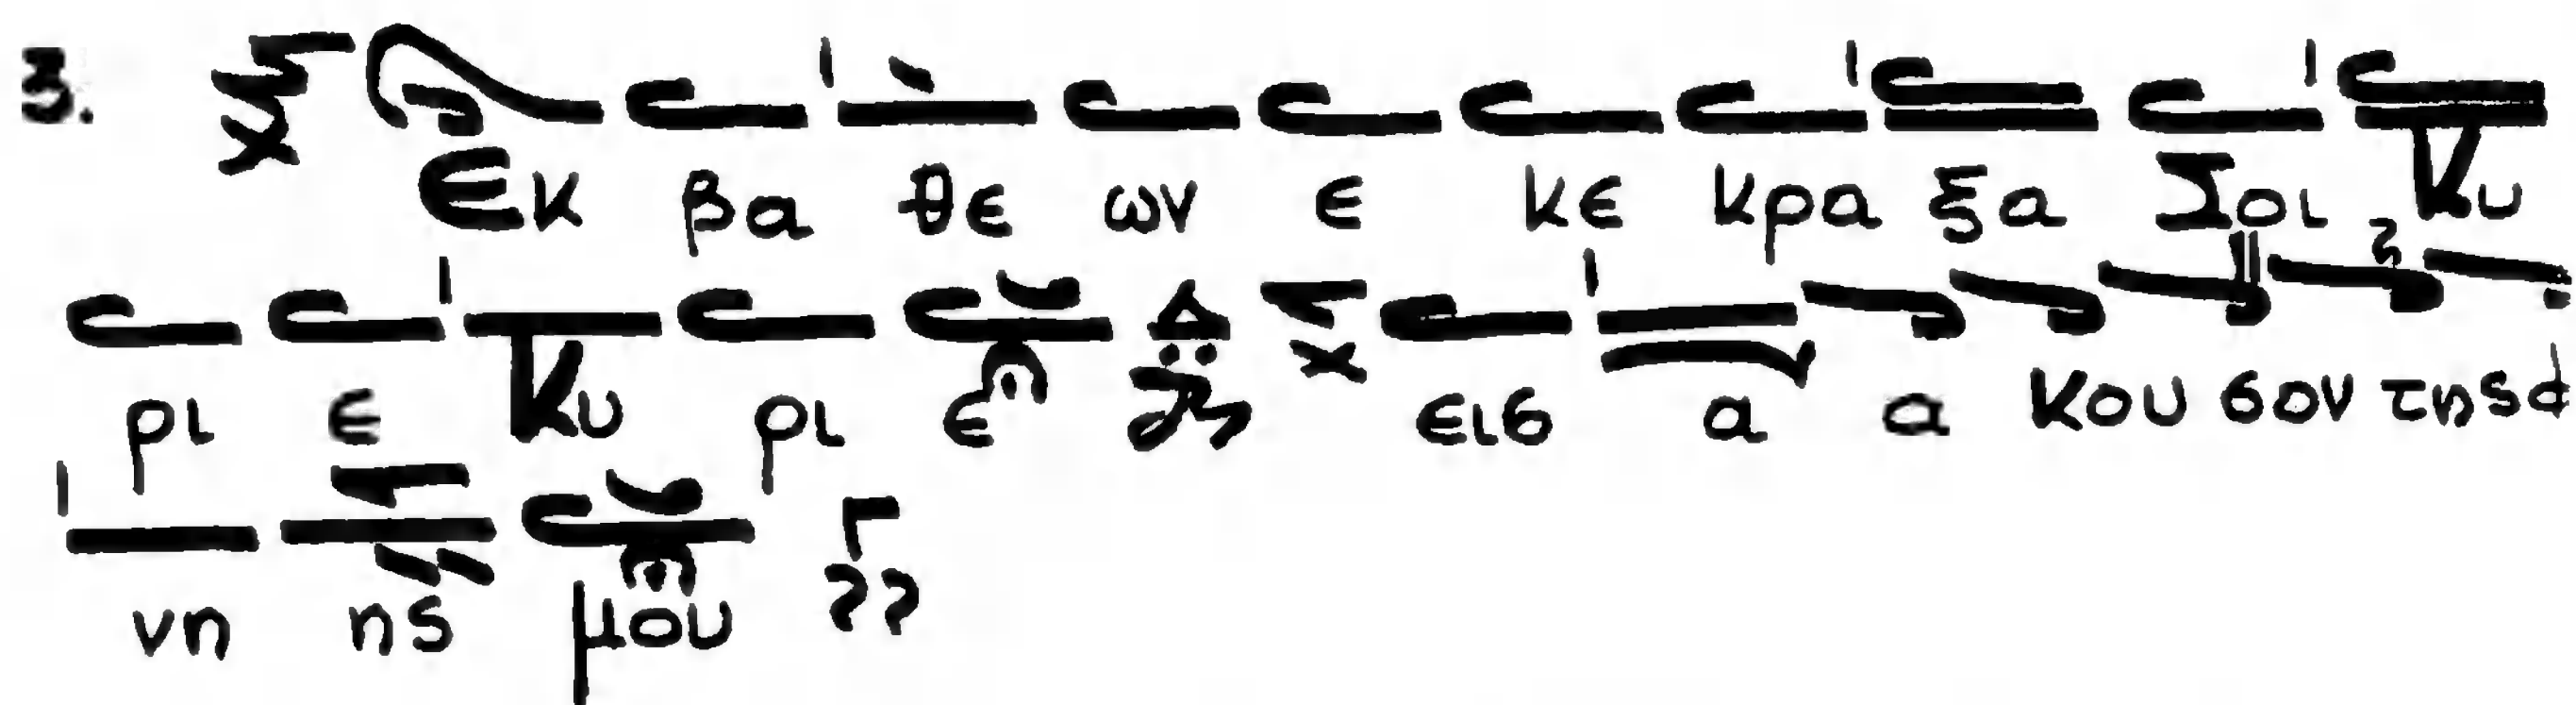 3. Εκ βα θε ων ε κε κρα ξα Σοι Κυ
ρι ε Κυ ρι ε εισ α α κου σον της φ
νη ης μου